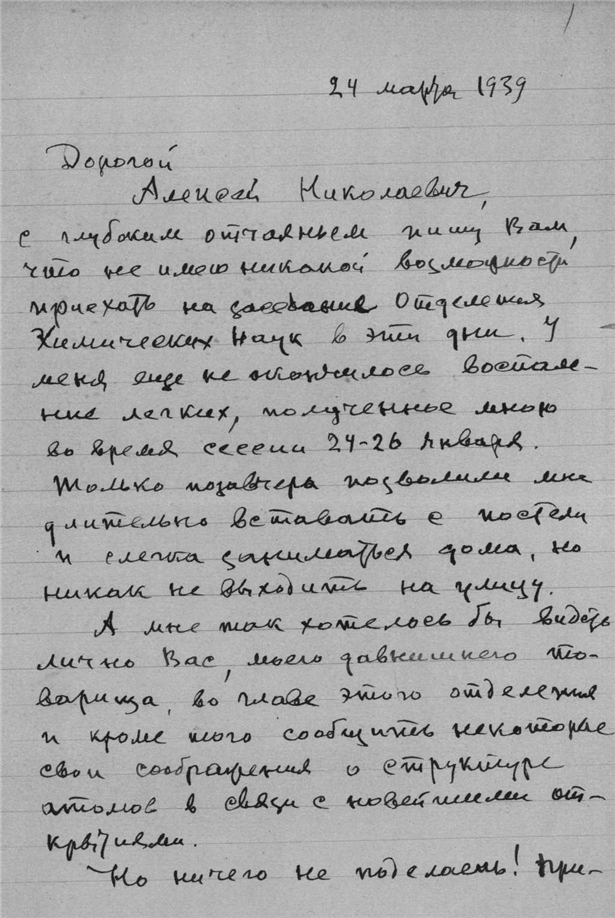 24 марта 1939
Дорогой
Алексей Николаевич,
с глубоким отчаяньем пишу Вам,
что не имею никакой возможности
приехать на заседание Отделения
Химических Наук в эти дни. У
меня еще не окончилось воспале-
ние легких, полученное мною
во время сессии 24-26 января.
Только позавчера позволили мне
длительно вставать с постели
и слегка заниматься дома, но
никак не выходить на улицу.
А мне так хотелось бы видеть
лично Вас, моего давнишнего то-
варища, во главе этого отделения
и кроме того сообщить некоторые
свои соображения о структуре
атомов в связи с новейшими от-
крытиями.
Но ничего не поделаешь! При-